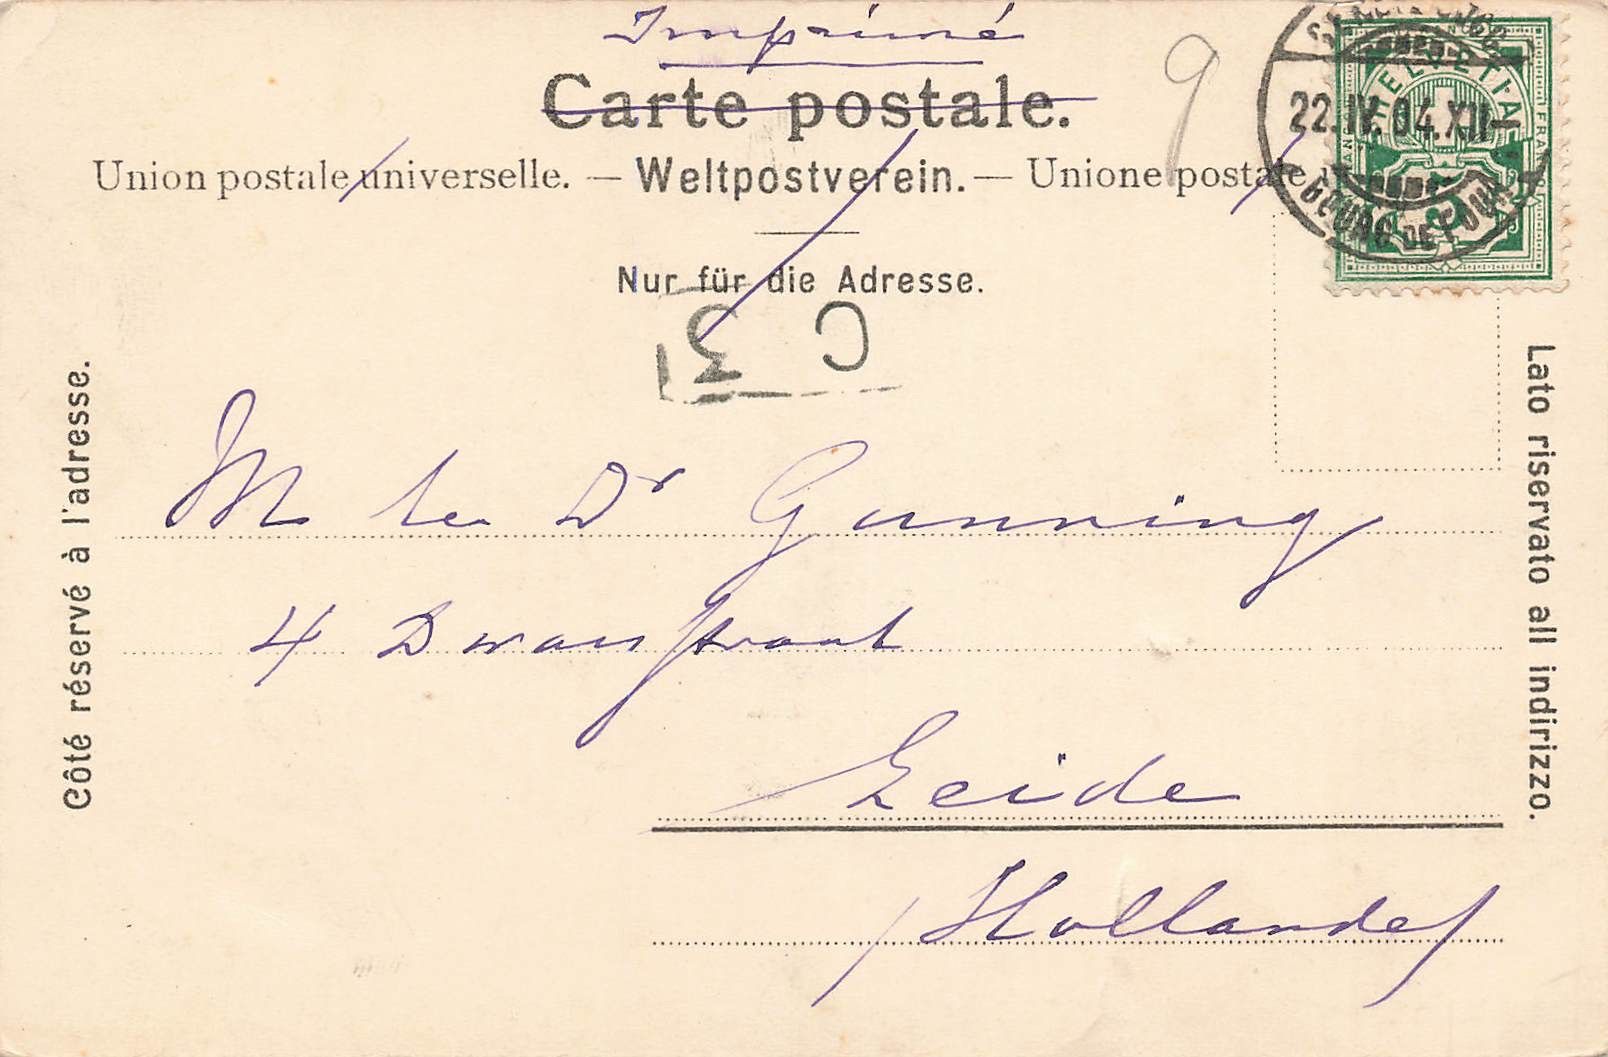 Imprimé
Carte postale.
Union postale universelle. — Weltpostverein. — Unione postale
Nur für die Adresse.
9
HELVETIA
22.IV.04.XII–
BOURG DE FOUR
C 31
Côté réservé à l'adresse.
Lato riservato all indirizzo.
M le Dr Gunning
4
Leide
(Hollande)